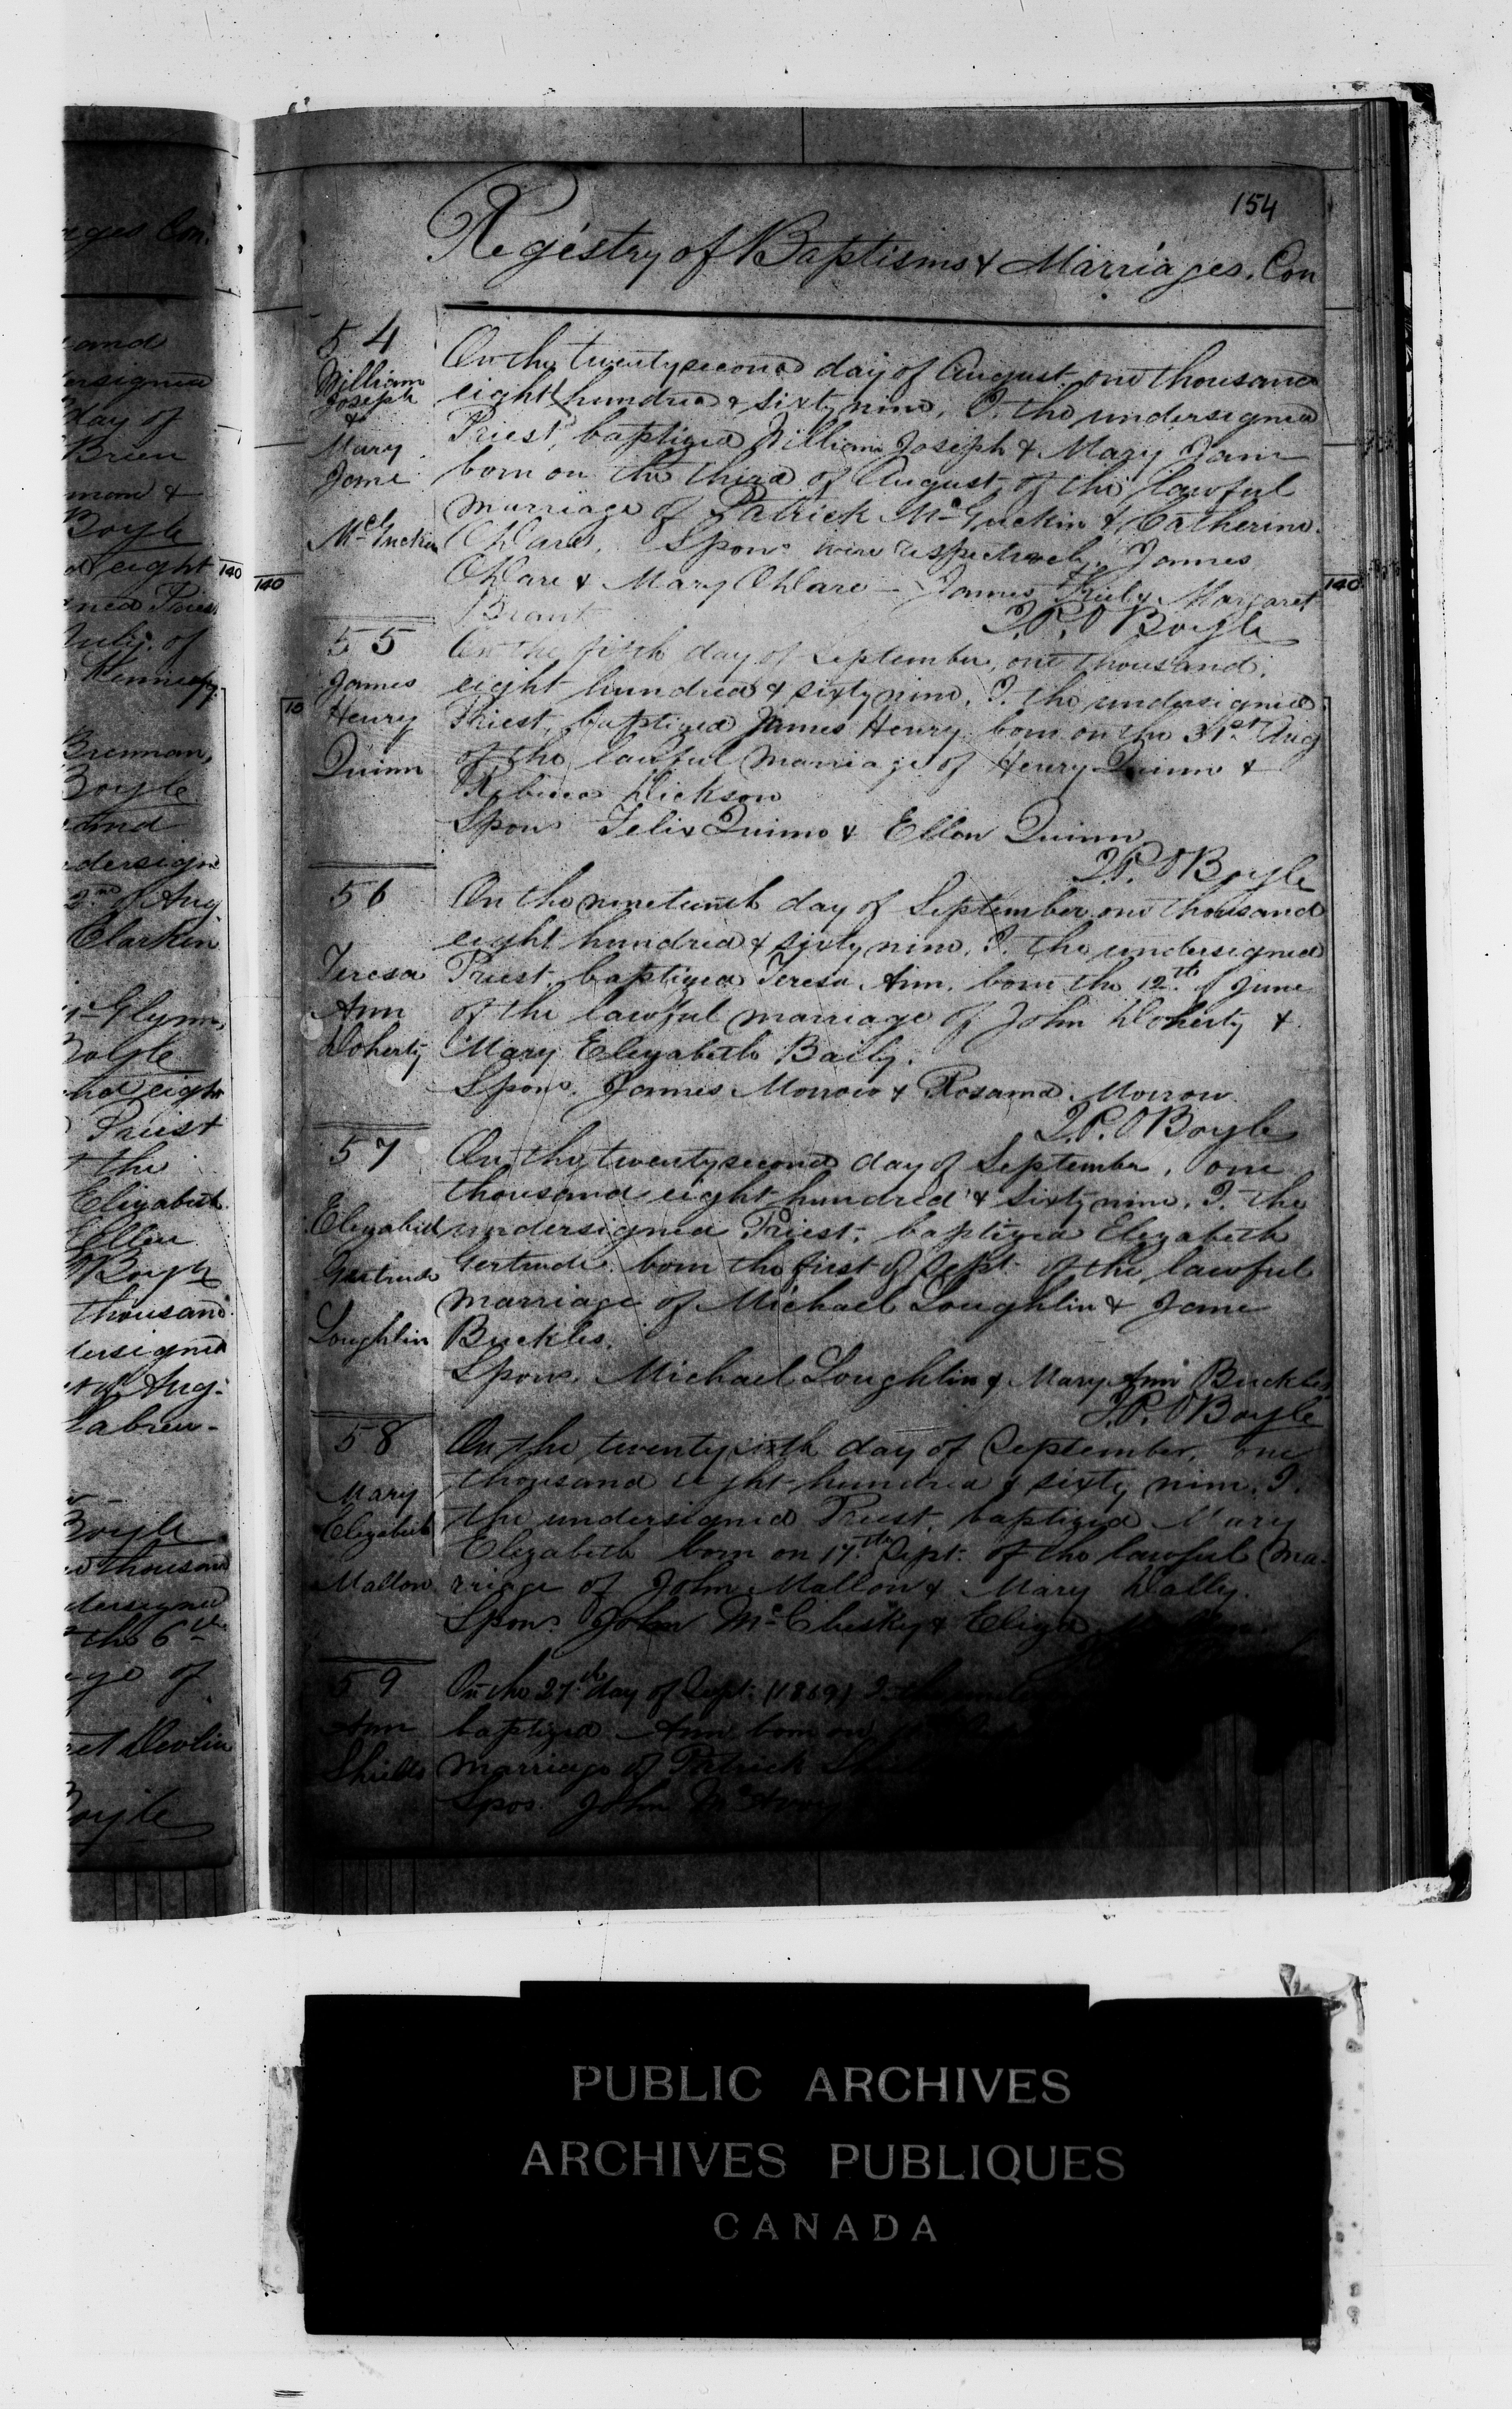 ages Con.
and
ersigned
day of
Brien
man &
Boyle
d eight
ned Priest
July. of
Kennedy
Brennan,
Boyle
and
dersign
2nd of Aug
Clarkin
Mc Glynn,
Boyle
nd eigh
Priest
the
Elizabeth
Ellen
O'Boyle
thousand
dersigned
of Aug.
Labreu-
Boyle
thousand
dersigned
the 6th
age of
et Devlin
Boyle
140
140
140
10
154
Registry of Baptisms & Marriages. Con
54
William
Joseph
&
Mary
Jane
McGuckin
On the twentysecond day of August one thousand
eight hundred & sixty nine, I. the undersigned
Priest, baptized William Joseph & Mary Jane
born on the third of August, of the lawful
marriage of Patrick McGuckin & Catherine
O'Hare. Spons were respectively James
O'Hare & Mary O'Hare - James & Margaret
T.P. O'Boyle
55
James
Henry
Quinn
On the fifth day of September, one thousand.
eight hundred & sixty nine, I. the undersigned
Priest, baptized James Henry, born on the 31st Aug
of the lawful marriage of Henry Quinn &
Rebecca Dickson
Spons Felix Quinn & Ellen Quinn
T.P. O'Boyle
56
Teresa
Ann
Doherty
On the nineteenth day of September one thousand
eight hundred & sixty nine, I. the undersigned
Priest, baptized Teresa Ann, born the 12th of June
of the lawful marriage of John Doherty &
Mary Elizabeth Baily.
Spons. James Morrow & Rosanna Morrow.
T.P. O'Boyle
57
Elizabeth
Gertrude
Loughlin
On the twentysecond day of September, one
thousand eight hundred & sixty nine, I. the
undersigned Priest, baptized Elizabeth
Gertrude. born the first of Sept. of the lawful
marriage of Michael Loughlin & Jane
Buckles.
Spons. Michael Loughlin & Mary Ann Buckles
T.P. O'Boyle
58
Mary
Elizabeth
Mallon
On the twentysixth day of September, one
thousand eight hundred & sixty nine, I.
the undersigned Priest, baptized Mary
Elizabeth born on 17th Sept. of the lawful ma-
rriage of John Mallon & Mary Dally.
Spons. John McClusky & Eliza
59
Ann
Shields
On the 27th day of Sept. (1869) I. the
baptized Ann born on
marriage of Patrick
Spos. John
PUBLIC ARCHIVES
ARCHIVES PUBLIQUES
CANADA